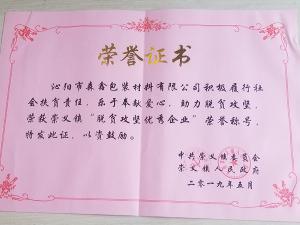 荣誉证书
沁阳市森鑫包装材料有限公司积极履行社
会扶贫责任，乐于奉献爱心，助力脱贫攻坚，
荣获崇义镇“脱贫攻坚优秀企业”荣誉称号，
特发此证，以资鼓励。
中共崇义镇委员会
崇义镇人民政府
二〇一九年五月